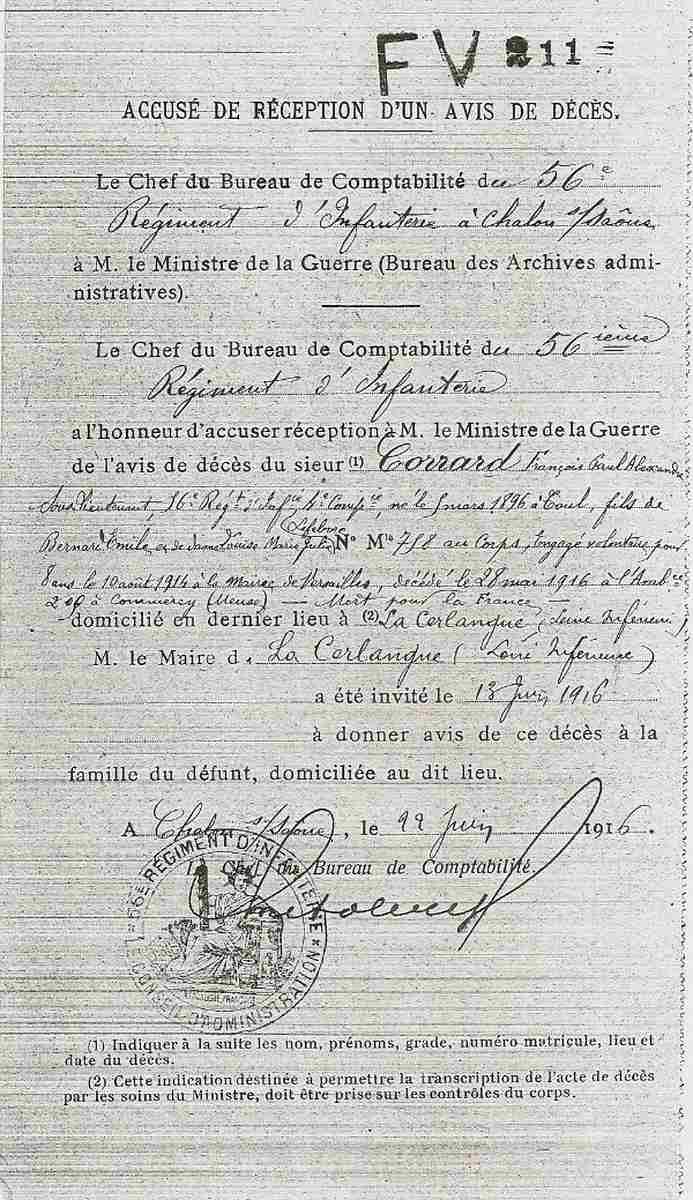 FV 211
ACCUSÉ DE RÉCEPTION D'UN AVIS DE DÉCÈS.
Le Chef du Bureau de Comptabilité du 56e
Régiment d'Infanterie à Chalon s/Saône
à M. le Ministre de la Guerre (Bureau des Archives admi-
nistratives).
Le Chef du Bureau de Comptabilité du 56ième
Régiment d'Infanterie
a l'honneur d'accuser réception à M. le Ministre de la Guerre
de l'avis de décès du sieur (1) Corrard François Paul Alexandre
Sous Lieutenant, 56e Regt d'Infie 4e Compie, né le 5 mars 1896 à Toul, fils de
Bernard Emile et de dame Louise Marie Julie Lefebvre No Mle 758 au Corps, engagé volontaire pour
8 ans le 10 août 1914 à la Mairie de Versailles, décédé le 28 mai 1916 à l'Amb ce
2 à Commercy (Meuse) — Mort pour la France —
domicilié en dernier lieu à (2) La Cerlangue (Seine Inférieure)
M. le Maire d. La Cerlangue ( Inférieure )
a été invité le 13 Juin 1916
à donner avis de ce décès à la
famille du défunt, domiciliée au dit lieu.
A Chalon s/Saône, le 22 Juin 1916.
Le Chef du Bureau de Comptabilité.
56E RÉGIMENT D'INFANTERIE
LE CONSEIL D'ADMINISTRATION
(1) Indiquer à la suite les nom, prénoms, grade, numéro matricule, lieu et
date du décès.
(2) Cette indication destinée à permettre la transcription de l'acte de décès
par les soins du Ministre, doit être prise sur les contrôles du corps.